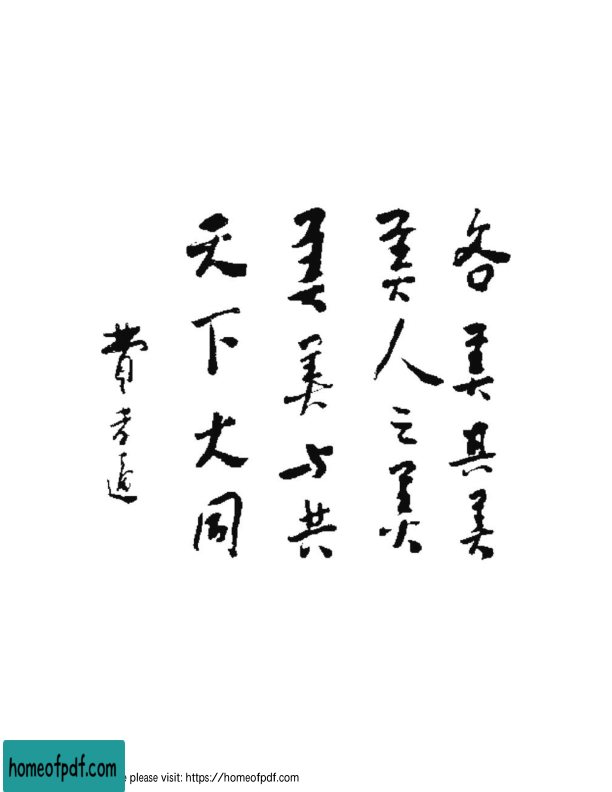 各美其美
美人之美
美美与共
天下大同
费孝通
homeofpdf.com
e please visit: https://homeofpdf.com